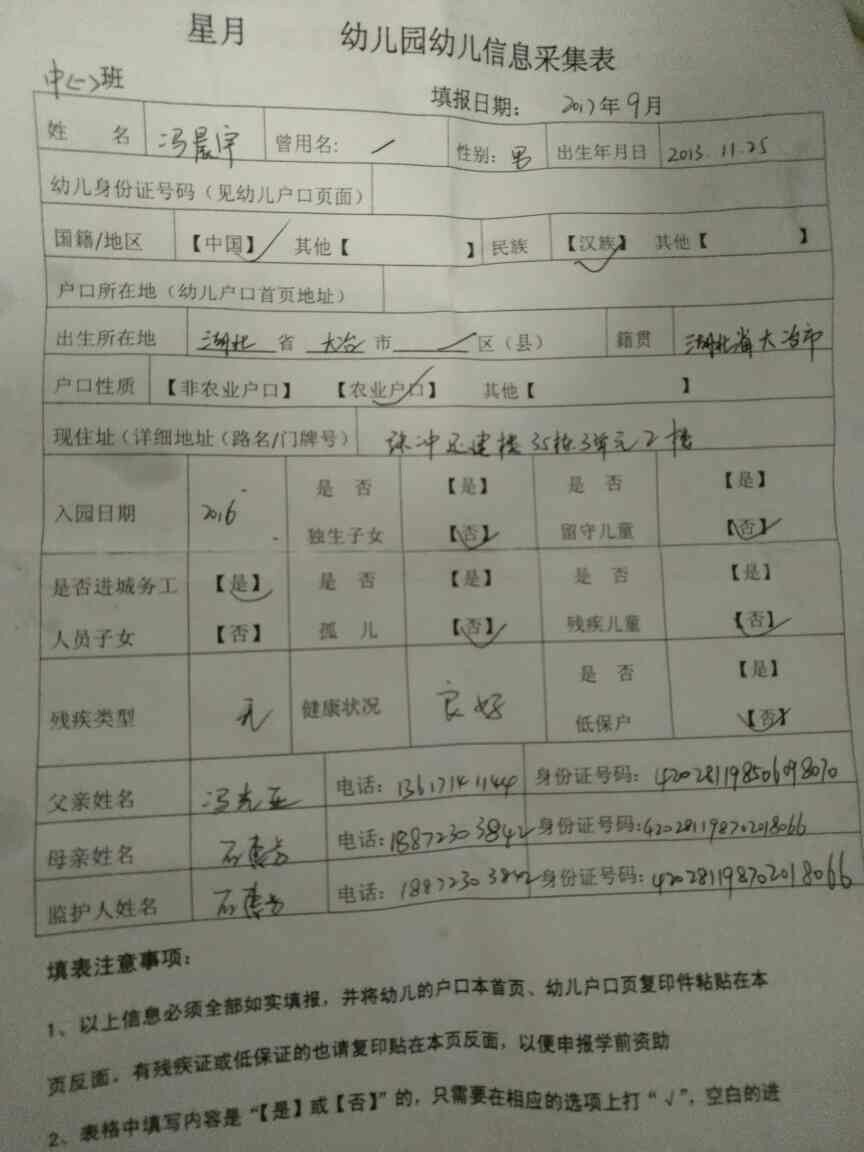 星月 幼儿园幼儿信息采集表
中(一)班 填报日期: 2017年9月
姓名 冯晨宇 曾用名: / 性别: 男 出生年月日 2013.11.25
幼儿身份证号码(见幼儿户口页面)
国籍/地区 【中国】✓ 其他【 】 民族 【汉族】✓ 其他【 】
户口所在地(幼儿户口首页地址)
出生所在地 湖北 省 大冶 市 / 区(县) 籍贯 湖北省大冶市
户口性质 【非农业户口】 【农业户口】✓ 其他【 】
现住址(详细地址(路名/门牌号) 冲还建楼35栋3单元2楼
入园日期 2016 是 否 【是】 是 否 【是】
独生子女 【否】✓ 留守儿童 【否】✓
是否进城务工 【是】✓ 是 否 【是】 是 否 【是】
人员子女 【否】 孤 儿 【否】✓ 残疾儿童 【否】✓
残疾类型 无 健康状况 良好 是 否 【是】
低保户 【否】✓
父亲姓名 冯 电话: 13617141144 身份证号码: 420281198506098070
母亲姓名 石 电话: 18872303842 身份证号码: 420281198702018066
监护人姓名 石 电话: 18872303842 身份证号码: 420281198702018066
填表注意事项:
1、以上信息必须全部如实填报,并将幼儿的户口本首页、幼儿户口页复印件粘贴在本
页反面。有残疾证或低保证的也请复印贴在本页反面,以便申报学前资助
2、表格中填写内容是“【是】或【否】”的,只需要在相应的选项上打“√”,空白的进